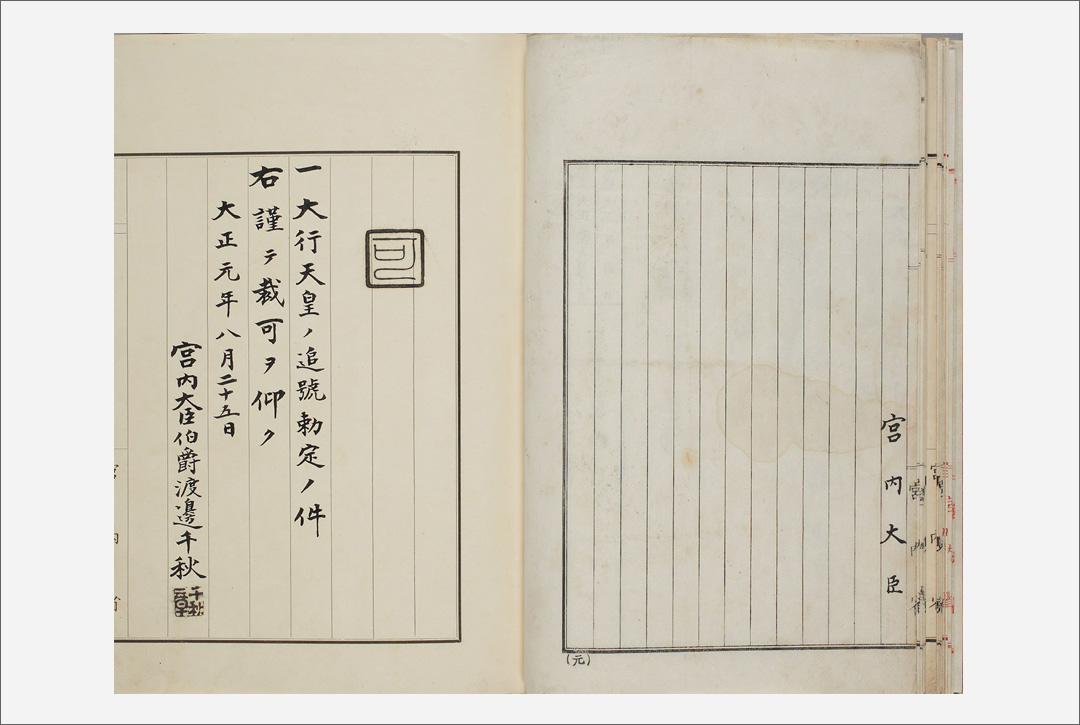 宮内大臣
(元)
可
一大行天皇ノ追號勅定ノ件
右謹テ裁可ヲ仰ク
大正元年八月二十五日
宮内大臣伯爵渡邊千秋
千秋